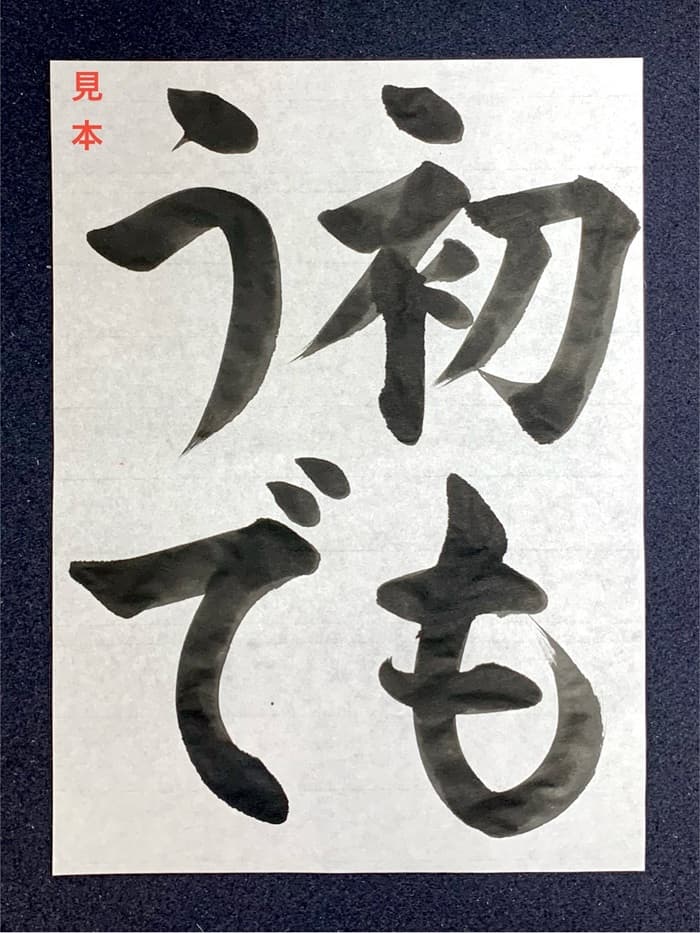 見本
初も
うで